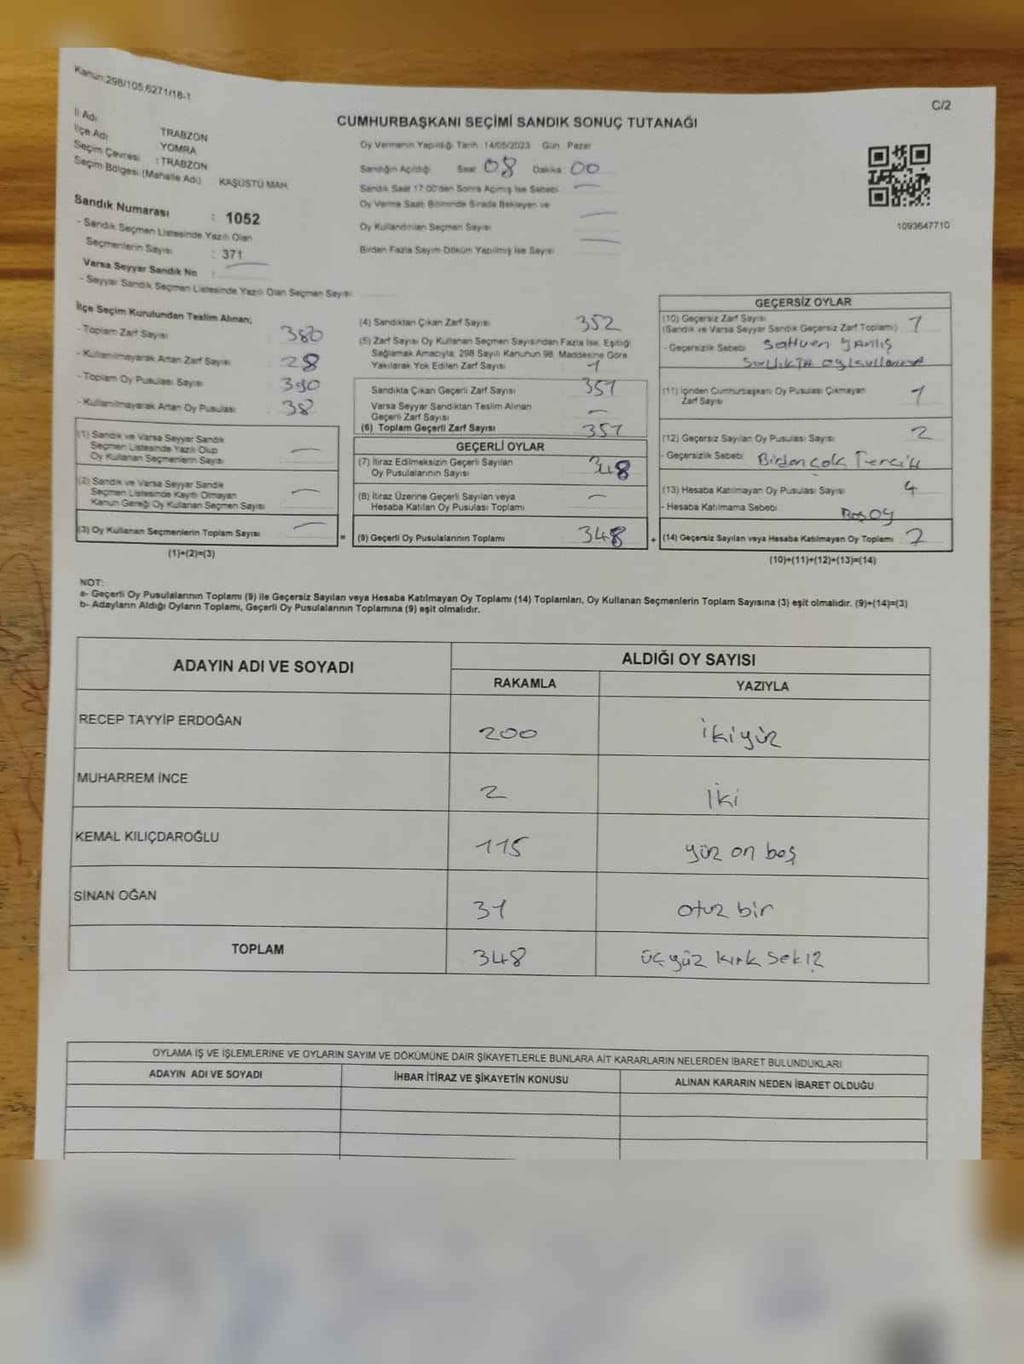 Kanun:298/105,6271/18-1
C/2
CUMHURBAŞKANI SEÇİMİ SANDIK SONUÇ TUTANAĞI
İl Adı TRABZON
İlçe Adı YOMRA
Seçim Çevresi : TRABZON
Seçim Bölgesi (Mahalle Adı) KAŞÜSTÜ MAH.
Sandık Numarası : 1052
- Sandık Seçmen Listesinde Yazılı Olan
Seçmenlerin Sayısı : 371
Varsa Seyyar Sandık No :
- Seyyar Sandık Seçmen Listesinde Yazılı Olan Seçmen Sayısı
Oy Vermenin Yapıldığı Tarih 14/05/2023 Gün Pazar
Sandığın Açıldığı Saat 08 Dakika 00
Sandık Saat 17.00'den Sonra Açılmış İse Sebebi
Oy Verme Saati Bitiminde Sırada Bekleyen ve
Oy Kullandırılan Seçmen Sayısı
Birden Fazla Sayım Döküm Yapılmış İse Sayısı
1093647710
İlçe Seçim Kurulundan Teslim Alınan;
- Toplam Zarf Sayısı 380
- Kullanılmayarak Artan Zarf Sayısı 28
- Toplam Oy Pusulası Sayısı 390
- Kullanılmayarak Artan Oy Pusulası 38
(1) Sandık ve Varsa Seyyar Sandık
Seçmen Listesinde Yazılı Olup
Oy Kullanan Seçmenlerin Sayısı
(2) Sandık ve Varsa Seyyar Sandık
Seçmen Listesinde Kayıtlı Olmayan
Kanun Gereği Oy Kullanan Seçmen Sayısı
(3) Oy Kullanan Seçmenlerin Toplam Sayısı
(1)+(2)=(3)
(4) Sandıktan Çıkan Zarf Sayısı 352
(5) Zarf Sayısı Oy Kullanan Seçmen Sayısından Fazla İse, Eşitliği
Sağlamak Amacıyla; 298 Sayılı Kanunun 98. Maddesine Göre
Yakılarak Yok Edilen Zarf Sayısı 1
Sandıkta Çıkan Geçerli Zarf Sayısı 351
Varsa Seyyar Sandıktan Teslim Alınan
Geçerli Zarf Sayısı
(6) Toplam Geçerli Zarf Sayısı 351
GEÇERLİ OYLAR
(7) İtiraz Edilmeksizin Geçerli Sayılan
Oy Pusulalarının Sayısı 348
(8) İtiraz Üzerine Geçerli Sayılan veya
Hesaba Katılan Oy Pusulası Toplamı
= (9) Geçerli Oy Pusulalarının Toplamı 348 +
GEÇERSİZ OYLAR
(10) Geçersiz Zarf Sayısı
(Sandık ve Varsa Seyyar Sandık Geçersiz Zarf Toplamı) 1
- Geçersizlik Sebebi yanlış
(11) İçinden Cumhurbaşkanı Oy Pusulası Çıkmayan
Zarf Sayısı 1
(12) Geçersiz Sayılan Oy Pusulası Sayısı 2
- Geçersizlik Sebebi Birden çok Tercih
(13) Hesaba Katılmayan Oy Pusulası Sayısı 4
- Hesaba Katılmama Sebebi Boş oy
(14) Geçersiz Sayılan veya Hesaba Katılmayan Oy Toplamı
(10)+(11)+(12)+(13)=(14)
NOT:
a- Geçerli Oy Pusulalarının Toplamı (9) ile Geçersiz Sayılan veya Hesaba Katılmayan Oy Toplamı (14) Toplamları, Oy Kullanan Seçmenlerin Toplam Sayısına (3) eşit olmalıdır. (9)+(14)=(3)
b- Adayların Aldığı Oyların Toplamı, Geçerli Oy Pusulalarının Toplamına (9) eşit olmalıdır.
ADAYIN ADI VE SOYADI
ALDIĞI OY SAYISI
RAKAMLA YAZIYLA
RECEP TAYYİP ERDOĞAN 200 ikiyüz
MUHARREM İNCE 2 iki
KEMAL KILIÇDAROĞLU 115 yüz on beş
SİNAN OĞAN 31 otuz bir
TOPLAM 348 üçyüz kırk sekiz
OYLAMA İŞ VE İŞLEMLERİNE VE OYLARIN SAYIM VE DÖKÜMÜNE DAİR ŞİKAYETLERLE BUNLARA AİT KARARLARIN NELERDEN İBARET BULUNDUKLARI
ADAYIN ADI VE SOYADI İHBAR İTİRAZ VE ŞİKAYETİN KONUSU ALINAN KARARIN NEDEN İBARET OLDUĞU